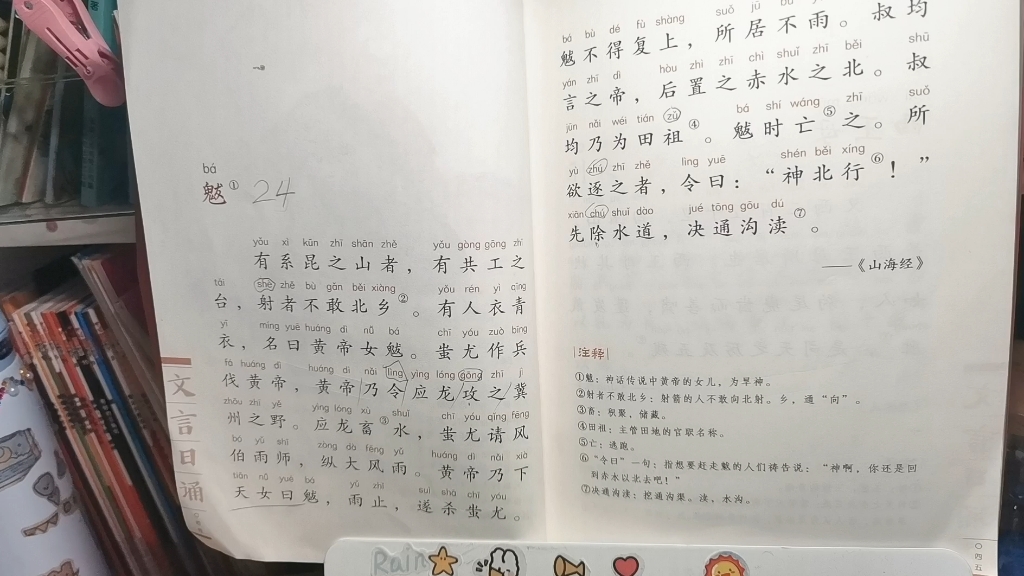 bá
魃① 24
yǒu xì kūn zhī shān zhě yǒu gòng gōng zhī
有系昆之山者，有共工之
tái shè zhě bù gǎn běi xiàng yǒu rén yì qīng
台，射者不敢北乡②。有人衣青
yī míng yuē huáng dì nǚ bá chī yóu zuò bīng
衣，名曰黄帝女魃。蚩尤作兵
fá huáng dì huáng dì nǎi lìng yìng lóng gōng zhī jì
伐黄帝，黄帝乃令应龙攻之冀
zhōu zhī yě yìng lóng xù shuǐ chī yóu qǐng fēng
州之野。应龙畜③水，蚩尤请风
bó yǔ shī zòng dà fēng yǔ huáng dì nǎi xià
伯雨师，纵大风雨。黄帝乃下
tiān nǚ yuē bá yǔ zhǐ suì shā chī yóu
天女曰魃，雨止，遂杀蚩尤。
文言日诵
bá bù dé fù shàng suǒ jū bù
魃不得复上，所居不雨。叔均
yán zhī dì hòu zhì zhī chì shuǐ zhī běi shū
言之帝，后置之赤水之北。叔
jūn nǎi wéi tián zǔ bá shí wáng zhī suǒ
均乃为田祖④。魃时亡⑤之。所
yù zhú zhī zhě lìng yuē shén běi xíng
欲逐之者，令曰：“神北行⑥！”
xiān chú shuǐ dào jué tōng gōu dú
先除水道，决通沟渎⑦。
——《山海经》
注释
①魃：神话传说中黄帝的女儿，为旱神。
②射者不敢北乡：射箭的人不敢向北射。乡，通“向”。
③畜：积聚，储藏。
④田祖：主管田地的官职名称。
⑤亡：逃跑。
⑥“令曰”一句：指想要赶走魃的人们祷告说：“神啊，你还是回
到赤水以北去吧！”
⑦决通沟渎：挖通沟渠。渎，水沟。
〇四五
Rain